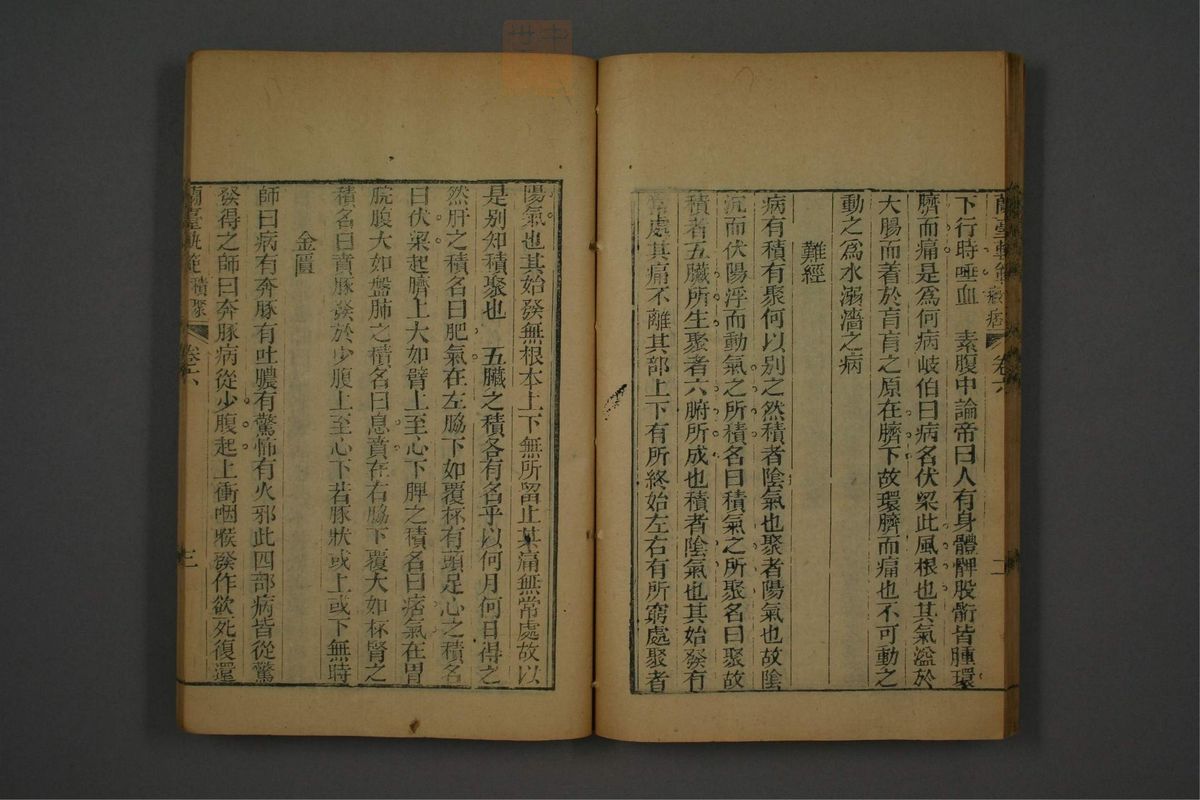 蘭臺軌範 卷六
下行時唾血 素腹中論帝曰人有身體髀股䯒皆腫環
臍而痛是為何病岐伯曰病名伏梁此風根也其氣溢於
大腸而著於肓肓之原在臍下故環臍而痛也不可動之
動之爲水溺濇之病
難經
病有積有聚何以別之然積者陰氣也聚者陽氣也故陰
沉而伏陽浮而動氣之所積名曰積氣之所聚名曰聚故
積者五臟所生聚者六腑所成也積者陰氣也其始發有
常處其痛不離其部上下有所終始左右有所窮處聚者
陽氣也其始發無根本上下無所留止其痛無常處故以
是别知積聚也 五臟之積各有名乎以何月何日得之
然肝之積名曰肥氣在左脇下如覆杯有頭足心之積名
曰伏梁起臍上大如臂上至心下脾之積名曰痞氣在胃
脘腹大如盤肺之積名曰息賁在右脇下覆大如杯腎之
積名曰賁豚發於少腹上至心下若豚狀或上或下無時
金匱
師曰病有奔豚有吐膿有驚怖有火邪此四部病皆從驚
發得之師曰奔豚病從少腹起上衝咽喉發作欲死復還
蘭臺軌範 積聚 卷六 三